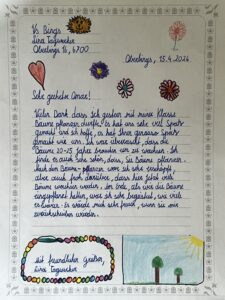 Vs Bings
Lina Tagwercher
Oberbings 16, 6700
Oberbings, 15.4.2024
Sehr geehrter Omar!
Vielen Dank, dass ich gestern mit meiner Klasse
Bäume pflanzen durfte. Es hat uns sehr viel Spaß
gemacht und ich hoffe, es hat Ihnen genauso Spaß
gemacht wie uns. Ich war überrascht, dass die
Bäume 20-25 Jahre brauchen um zu wachsen. Ich
finde es auch sehr schön, dass Sie Bäume pflanzen.
Nach dem Bäume-pflanzen war ich sehr erschöpft
aber auch froh darüber, dass hier jetzt viele
Bäume wachsen werden. Am Ende, als wir die Bäume
eingepflanzt hatten, war ich sehr begeistert, wie viele
es waren. Es würde mich sehr freuen, wenn Sie mir
zurückschreiben würden.
Mit freundlichen Grüßen,
Lina Tagwercher